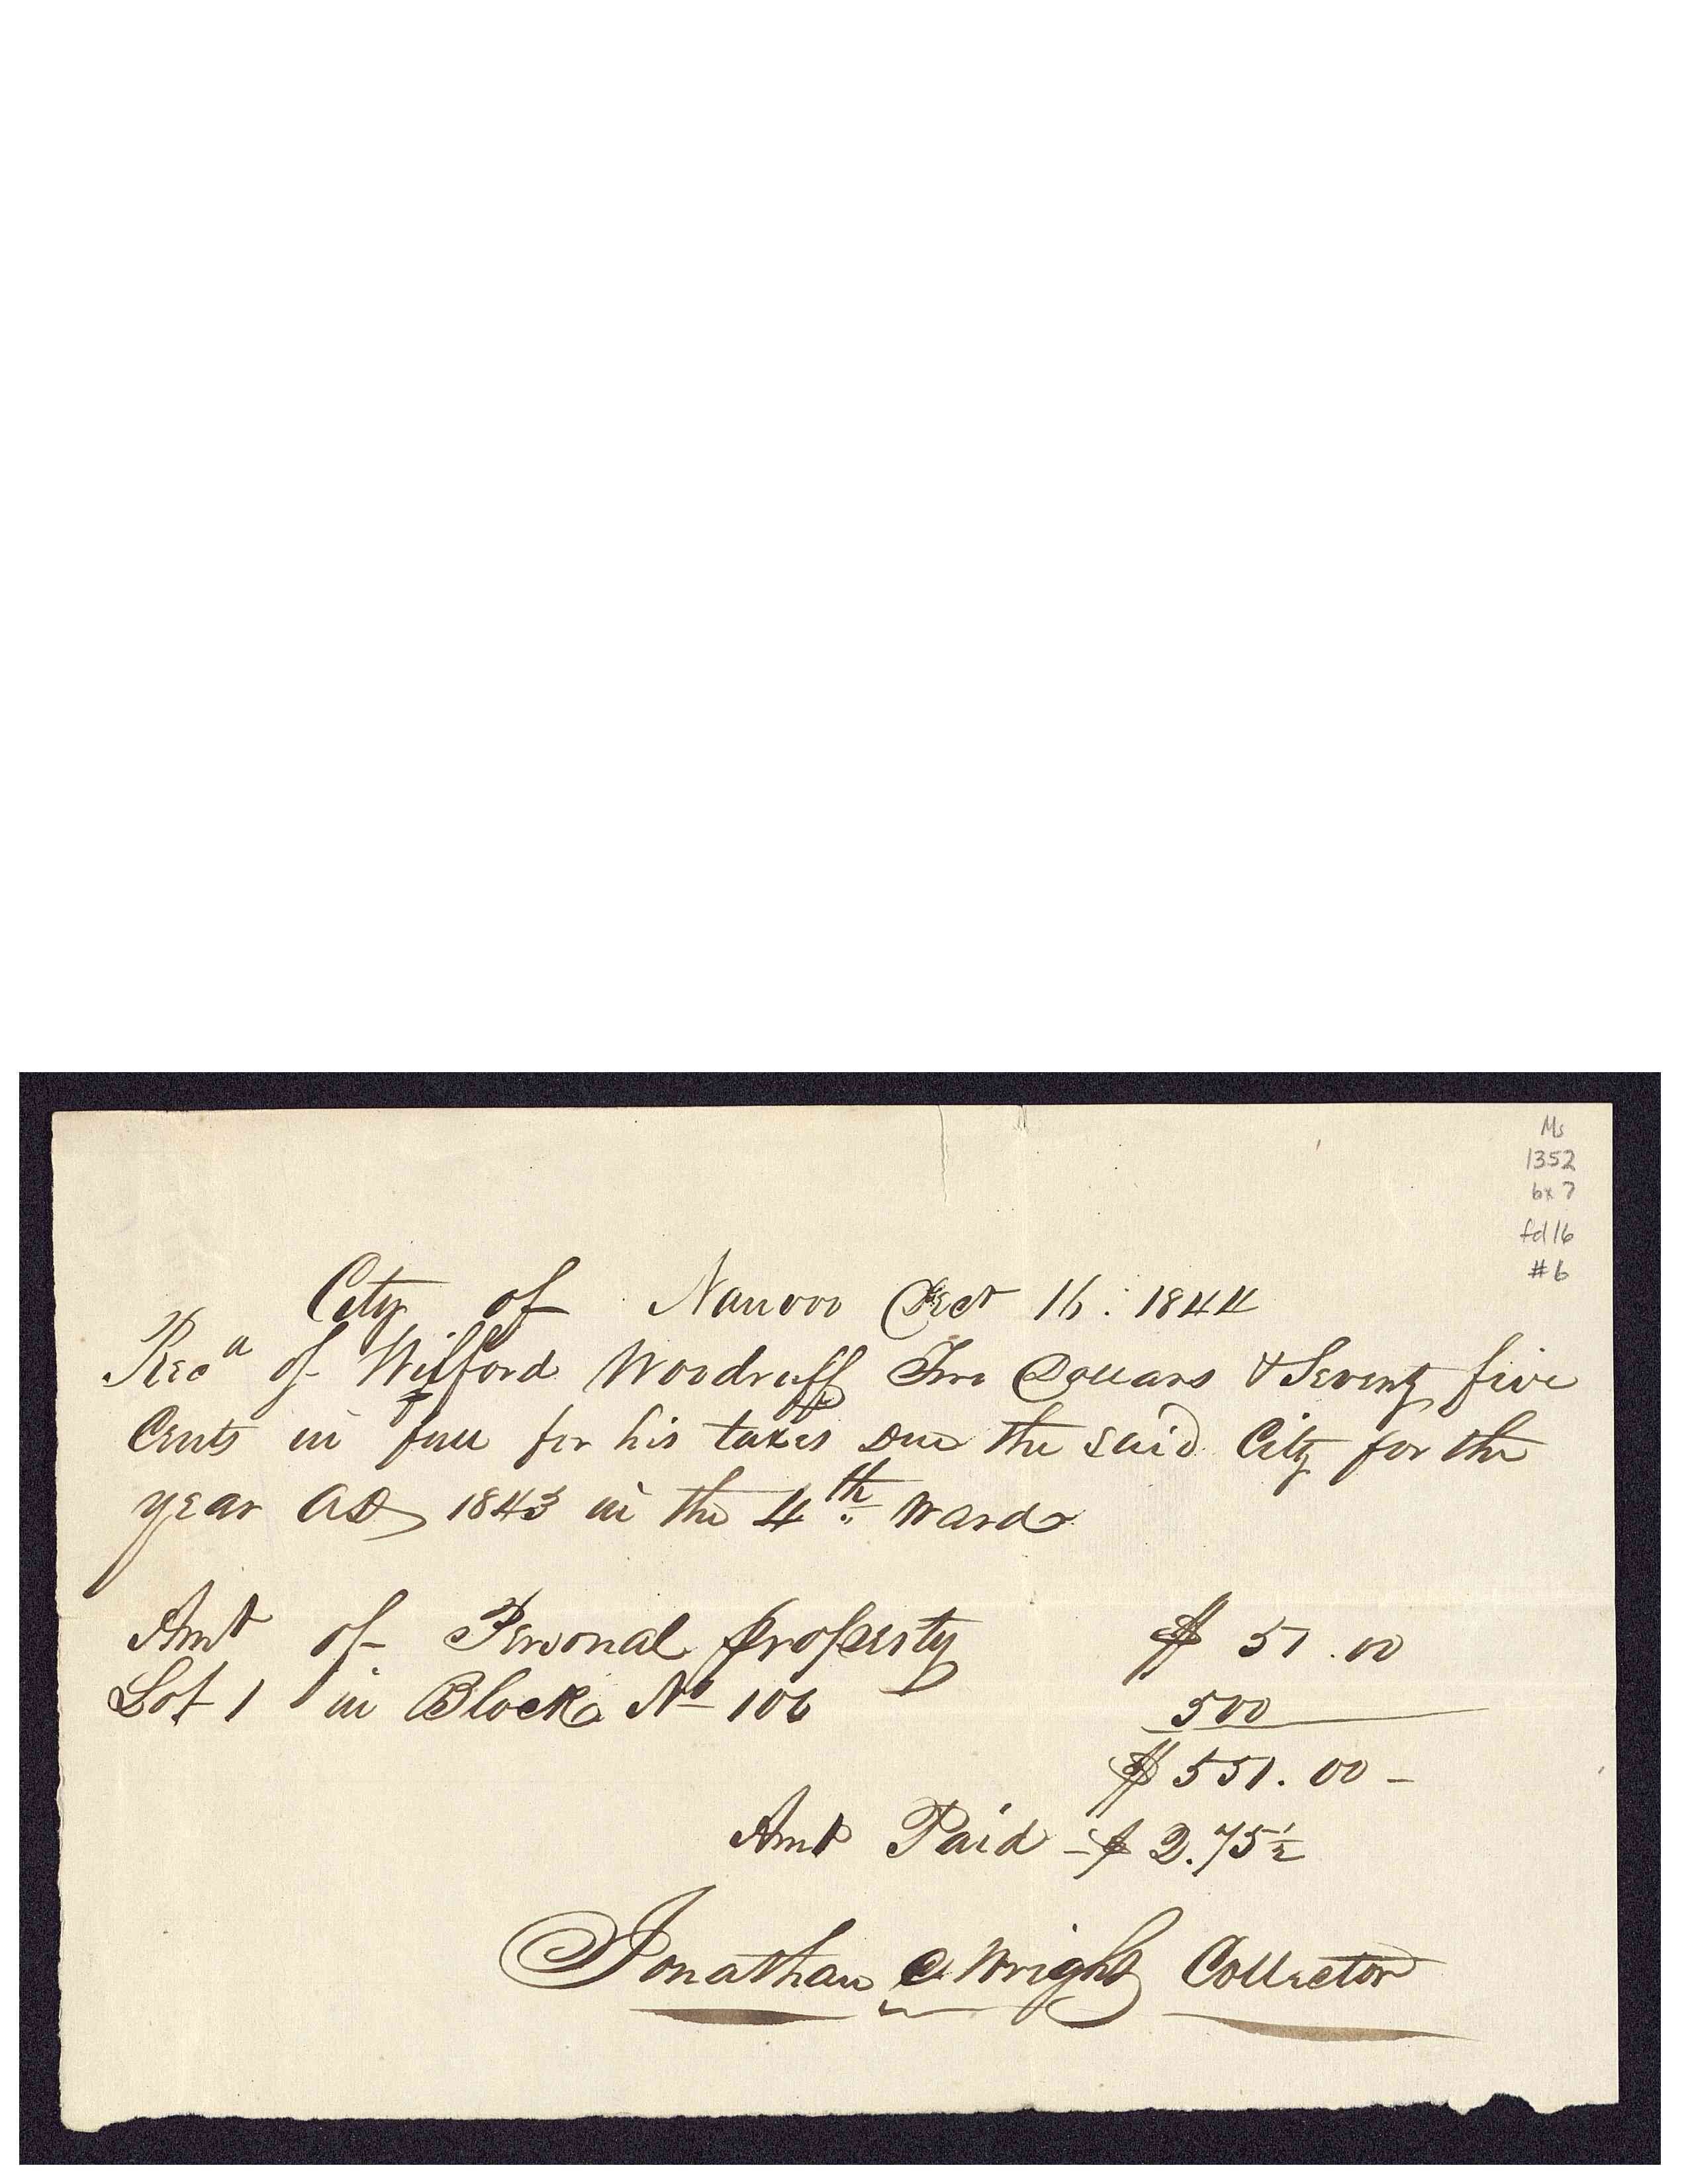 Ms
1352
bx 7
fd 16
# 6
City of Nauvoo Oct 16: 1844
Recd of Wilford Woodruff Two Dollars & Seventy five
Cents in full for his taxes Due the said City for the
year AD 1843 in the 4th Ward
Amt of Personal property $ 51.00
Lot 1 in Block No 106 500
$ 551.00 -
Amt Paid - $ 2.75½
Jonathan C Wright Collector